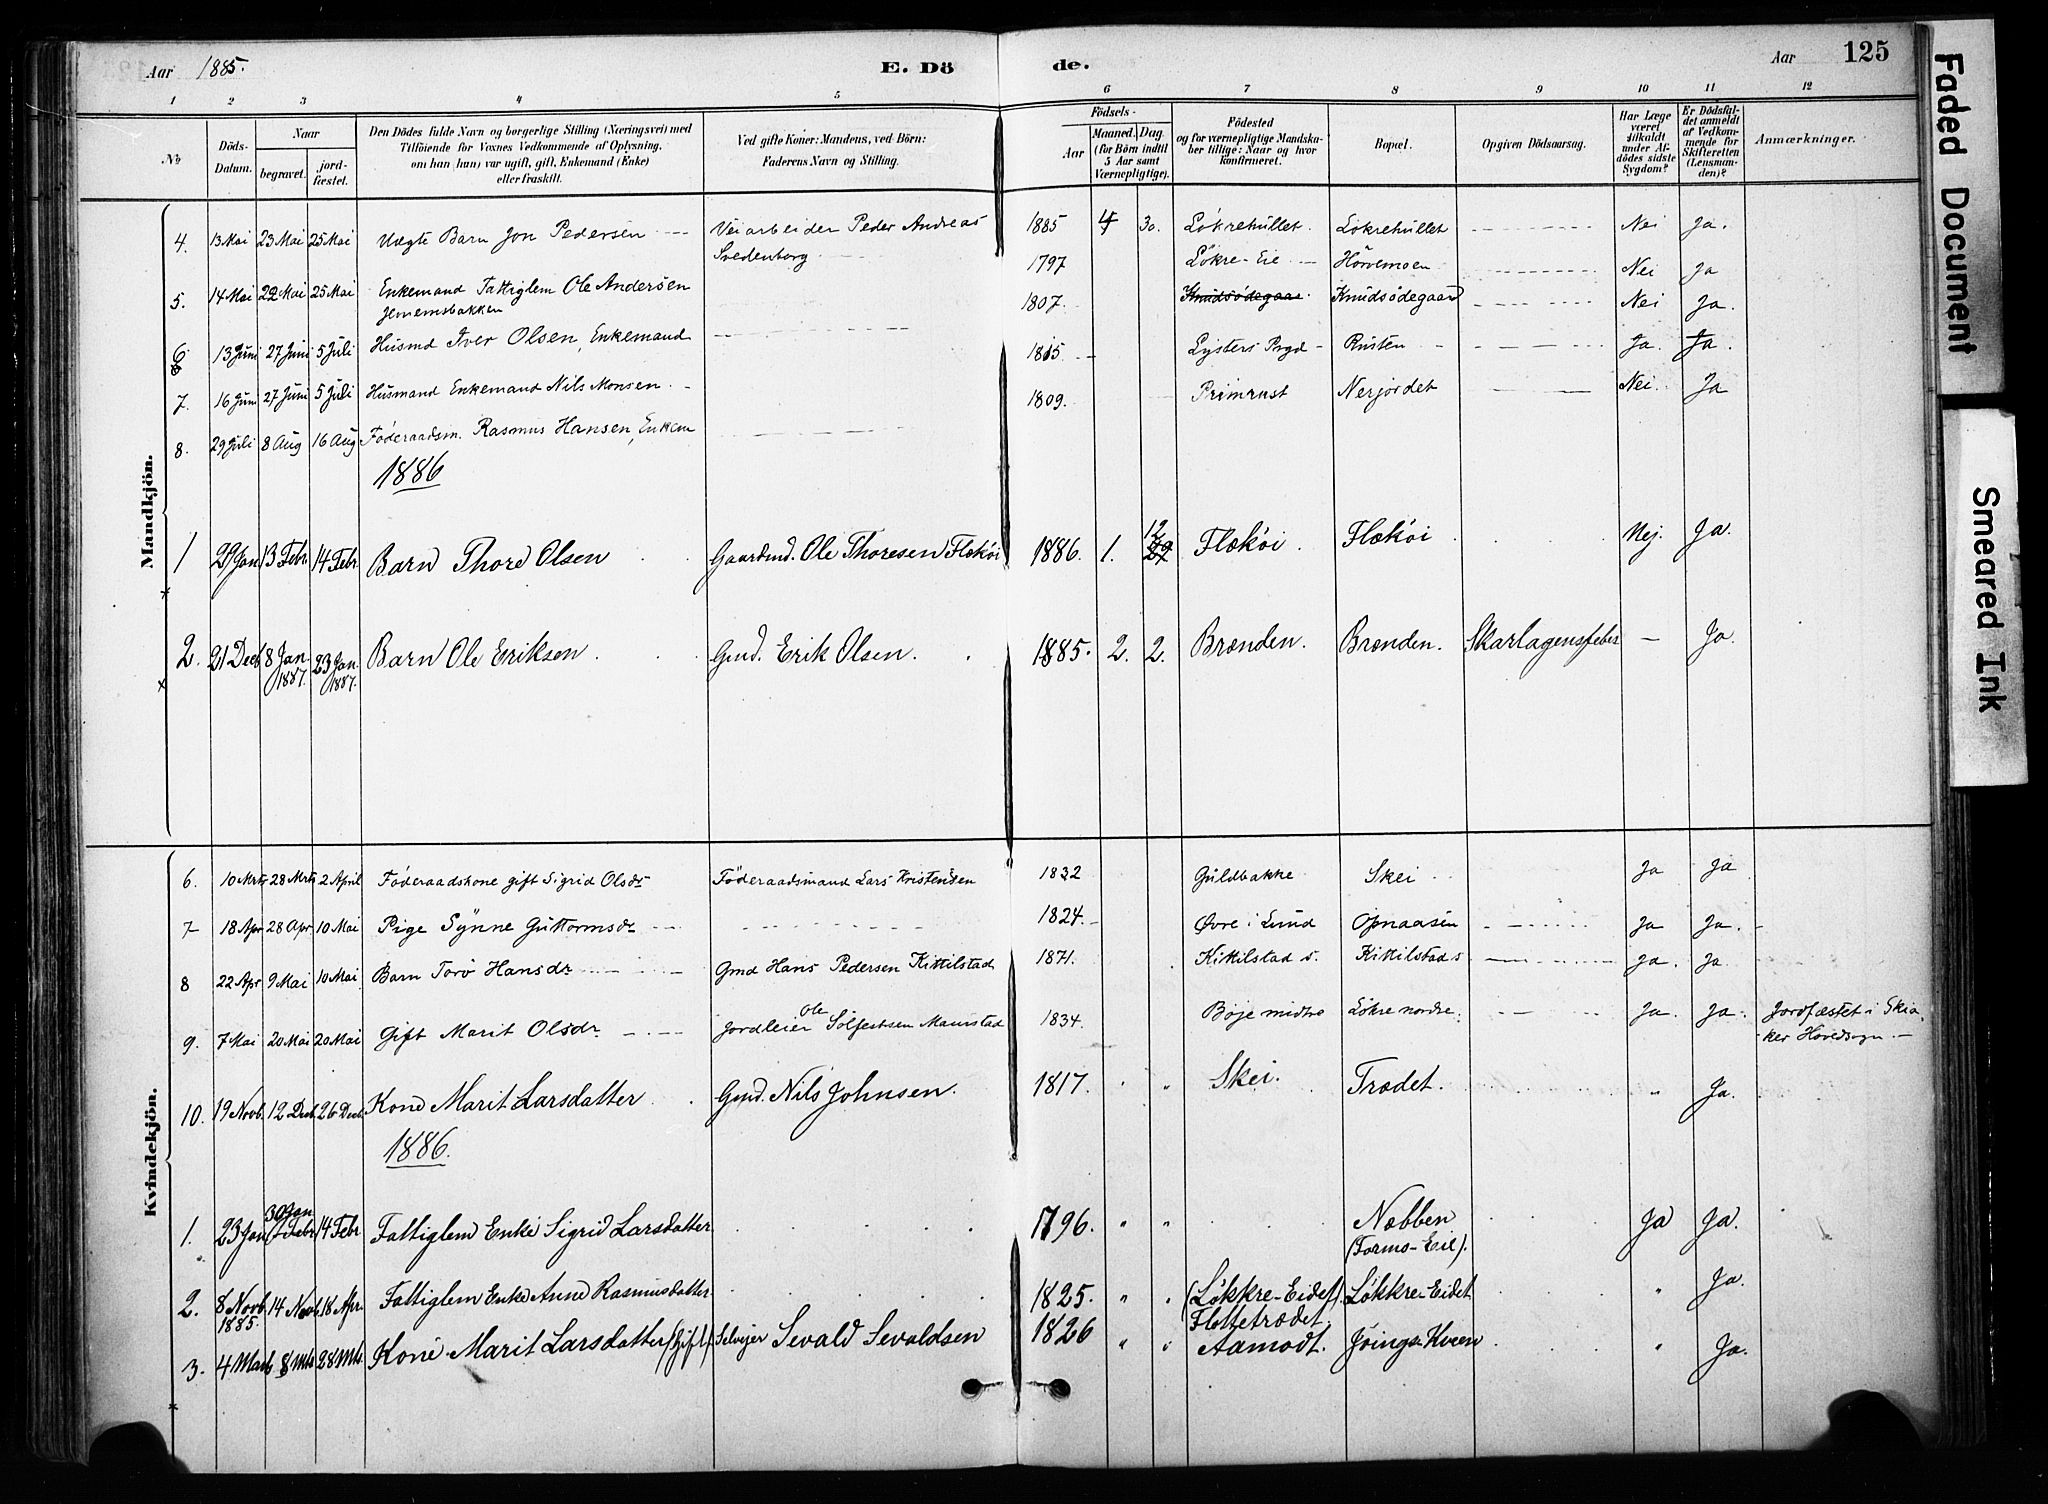 Aar 1885. E. Dö de. Aar 125
1 2 3 4 5 6 7 8 9 10 11 12
No
Döds-Datum.
Naar
begravet.
jord-fæstet.
Den Dödes fulde Navn og borgerlige Stilling (Næringsvei) med
Tilföiende for Voxnes Vedkommende af Oplysning,
om han (hun) var ugift, gift, Enkemand (Enke)
eller fraskilt.
Ved gifte Koner: Mandens, ved Börn:
Faderens Navn og Stilling.
Födsels-
Aar
Maaned. Dag.
(for Börn indtil
5 Aar samt
Værnepligtige).
Födested
og for værnepligtige Mandska-
ber tillige: Naar og hvor
konfirmeret.
Bopæl.
Opgiven Dödsaarsag.
Har Læge
været
tilkaldt
under Af-
dödes sidste
Sygdom?
Er Dödsfal-
det anmeldt
af Vedkom-
mende for
Skifteretten
(Lensman-
den)?
Anmærkninger.
Mandkjön.
4. 13 Mai 23 Mai 25 Mai Uægte Barn Jon Pedersen Veiarbeider Peder Andreas 1885 4 30. Løkrehullet. Løkrehullet Nei Ja.
Svedenborg
5. 14 Mai 22 Mai 25 Mai Enkemand Fattiglem Ole Andersen 1797 Løkre-Eie Hörvemoen Nei Ja
6 13 Juni 27 Juni 5 Juli Husmd Iver Olsen, Enkemand 1807. Knudsödegaar. Knudsödegaard Nei Ja.
7. 16 Juni 27 Juni 5 Juli Husmand Enkemand Nils Monsen 1815 Lysters Prgd Rusten Ja. Ja.
8. 29 Juli 8 Aug 16 Aug Föderaadsm. Rasmus Hansen, Enkem 1809. Primrust Nerjordet Nei. Ja
1886
1 29 Jan 13 Febr. 14 Febr. Barn Thore Olsen Gaardmd. Ole Thoresen Flækøi 1886. 1. 12 Flækøi. Flækøi Nej. Ja.
2. 21 Decb 8 Jan 1887. 23 Jan. 1887. Barn Ole Eriksen Gmd. Erik Olsen. 1885. 2. 2. Brænden. Brænden. Skarlagensfeber — Ja.
Kvindekjön.
6. 10 Mrts 28 Mrts 2 April Föderaadskone gift Sigrid Olsdr Föderaadsmand Lars Kristensen 1832 Guldbakke Skei Ja Ja
7 18 Apr 28 Apr. 10 Mai Pige Synne Guttormsdr 1824. Øvre i Lund Opnaasen Ja Ja.
8 22 Apr 9 Mai 10 Mai Barn Torø Hansdr Gmd Hans Pedersen Kittilstad 1871. Kittilstad s. Kittilstad s Ja. Ja.
9. 7 Mai 20 Mai 20 Mai Gift Marit Olsdr Jordleier Ole Solfestsen Maurstad 1834. Böje midtre Løkre nordre. Ja. Ja. Jordfæstet i Skia-
ker Hovedsogn.
10. 19 Novb. 12 Decb. 26 Decb. Kone Marit Larsdatter Gmd. Nils Johnsen. 1817. " " Skei. Trædet. " Ja.
1886.
1. 23 Jan 30 Jan 14 Febr Fattiglem Enke Sigrid Larsdatter 1796. " " Næbben Ja Ja.
(Forms-Eie).
2. 8 Novb. 1885. 14 Novb. 18 Apr. Fattiglem Enke Anne Rasmusdatter 1825. " " (Løkkre-Eidet). Løkkre-Eidet " Ja.
Flottetrædet.
3. 4 Marts 8 Mts 28 Mts Kone Marit Larsdatter (Gift). Selvejer Sevald Sevaldsen 1826 " " Aamodt. Jöings-Kvern " Ja.
Faded Document
Smeared Ink